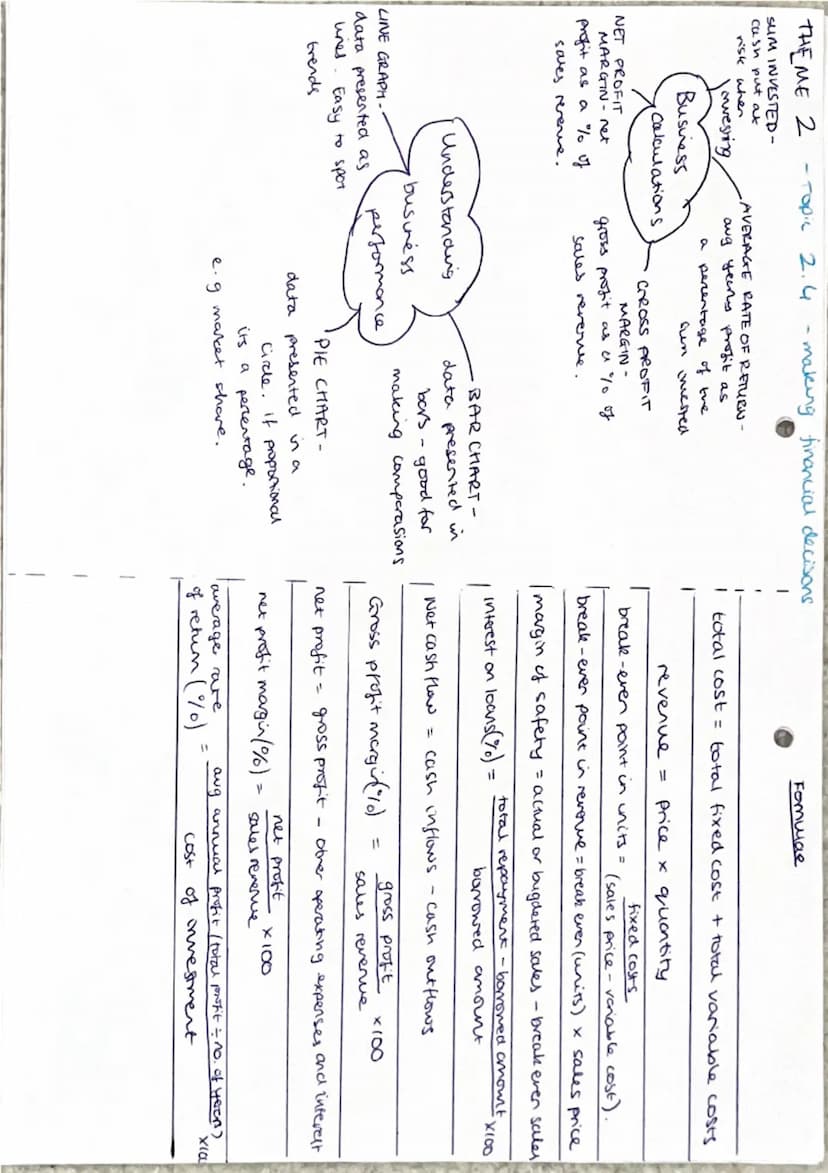 THEME 2 - Topic 2.4 - making financial decisions
SUM INVESTED -
cash put at
risk when
investing
AVERAGE RATE OF RETURN -
avg yearly profit as
a percentage of the
sum invested
Business
calculations
NET PROFIT
MARGIN - net
profit as a % of
sales revenue.
GROSS PROFIT
MARGIN -
gross profit as a % of
sales revenue.
Understanding
business
performance
LINE GRAPH -
data presented as
lines. Easy to spot
trends
BAR CHART -
data presented in
bars - good for
making comparasions
PIE CHART -
data presented in a
circle. if proportional
its a percentage.
e.g market share.
Formulae
total cost = total fixed cost + total variable costs
revenue = price x quantity
break-even point in units = fixed costs
(sales price - variable cost).
break-even point in revenue = break even (units) x sales price
margin of safety = actual or bugdered sales - break even sales
interest on loans (%) = total repayment - borrowed amount x100
borrowed amount
Net cash flow = cash inflows - cash outflows
Gross profit margin (%) = gross profit x 100
sales revenue
net profit = gross profit - other operating expenses and interest
net profit margin (%) = net profit x 100
sales revenue
average rate
of return (%) = avg annual profit (total profit ÷ no. of years)
cost of investment